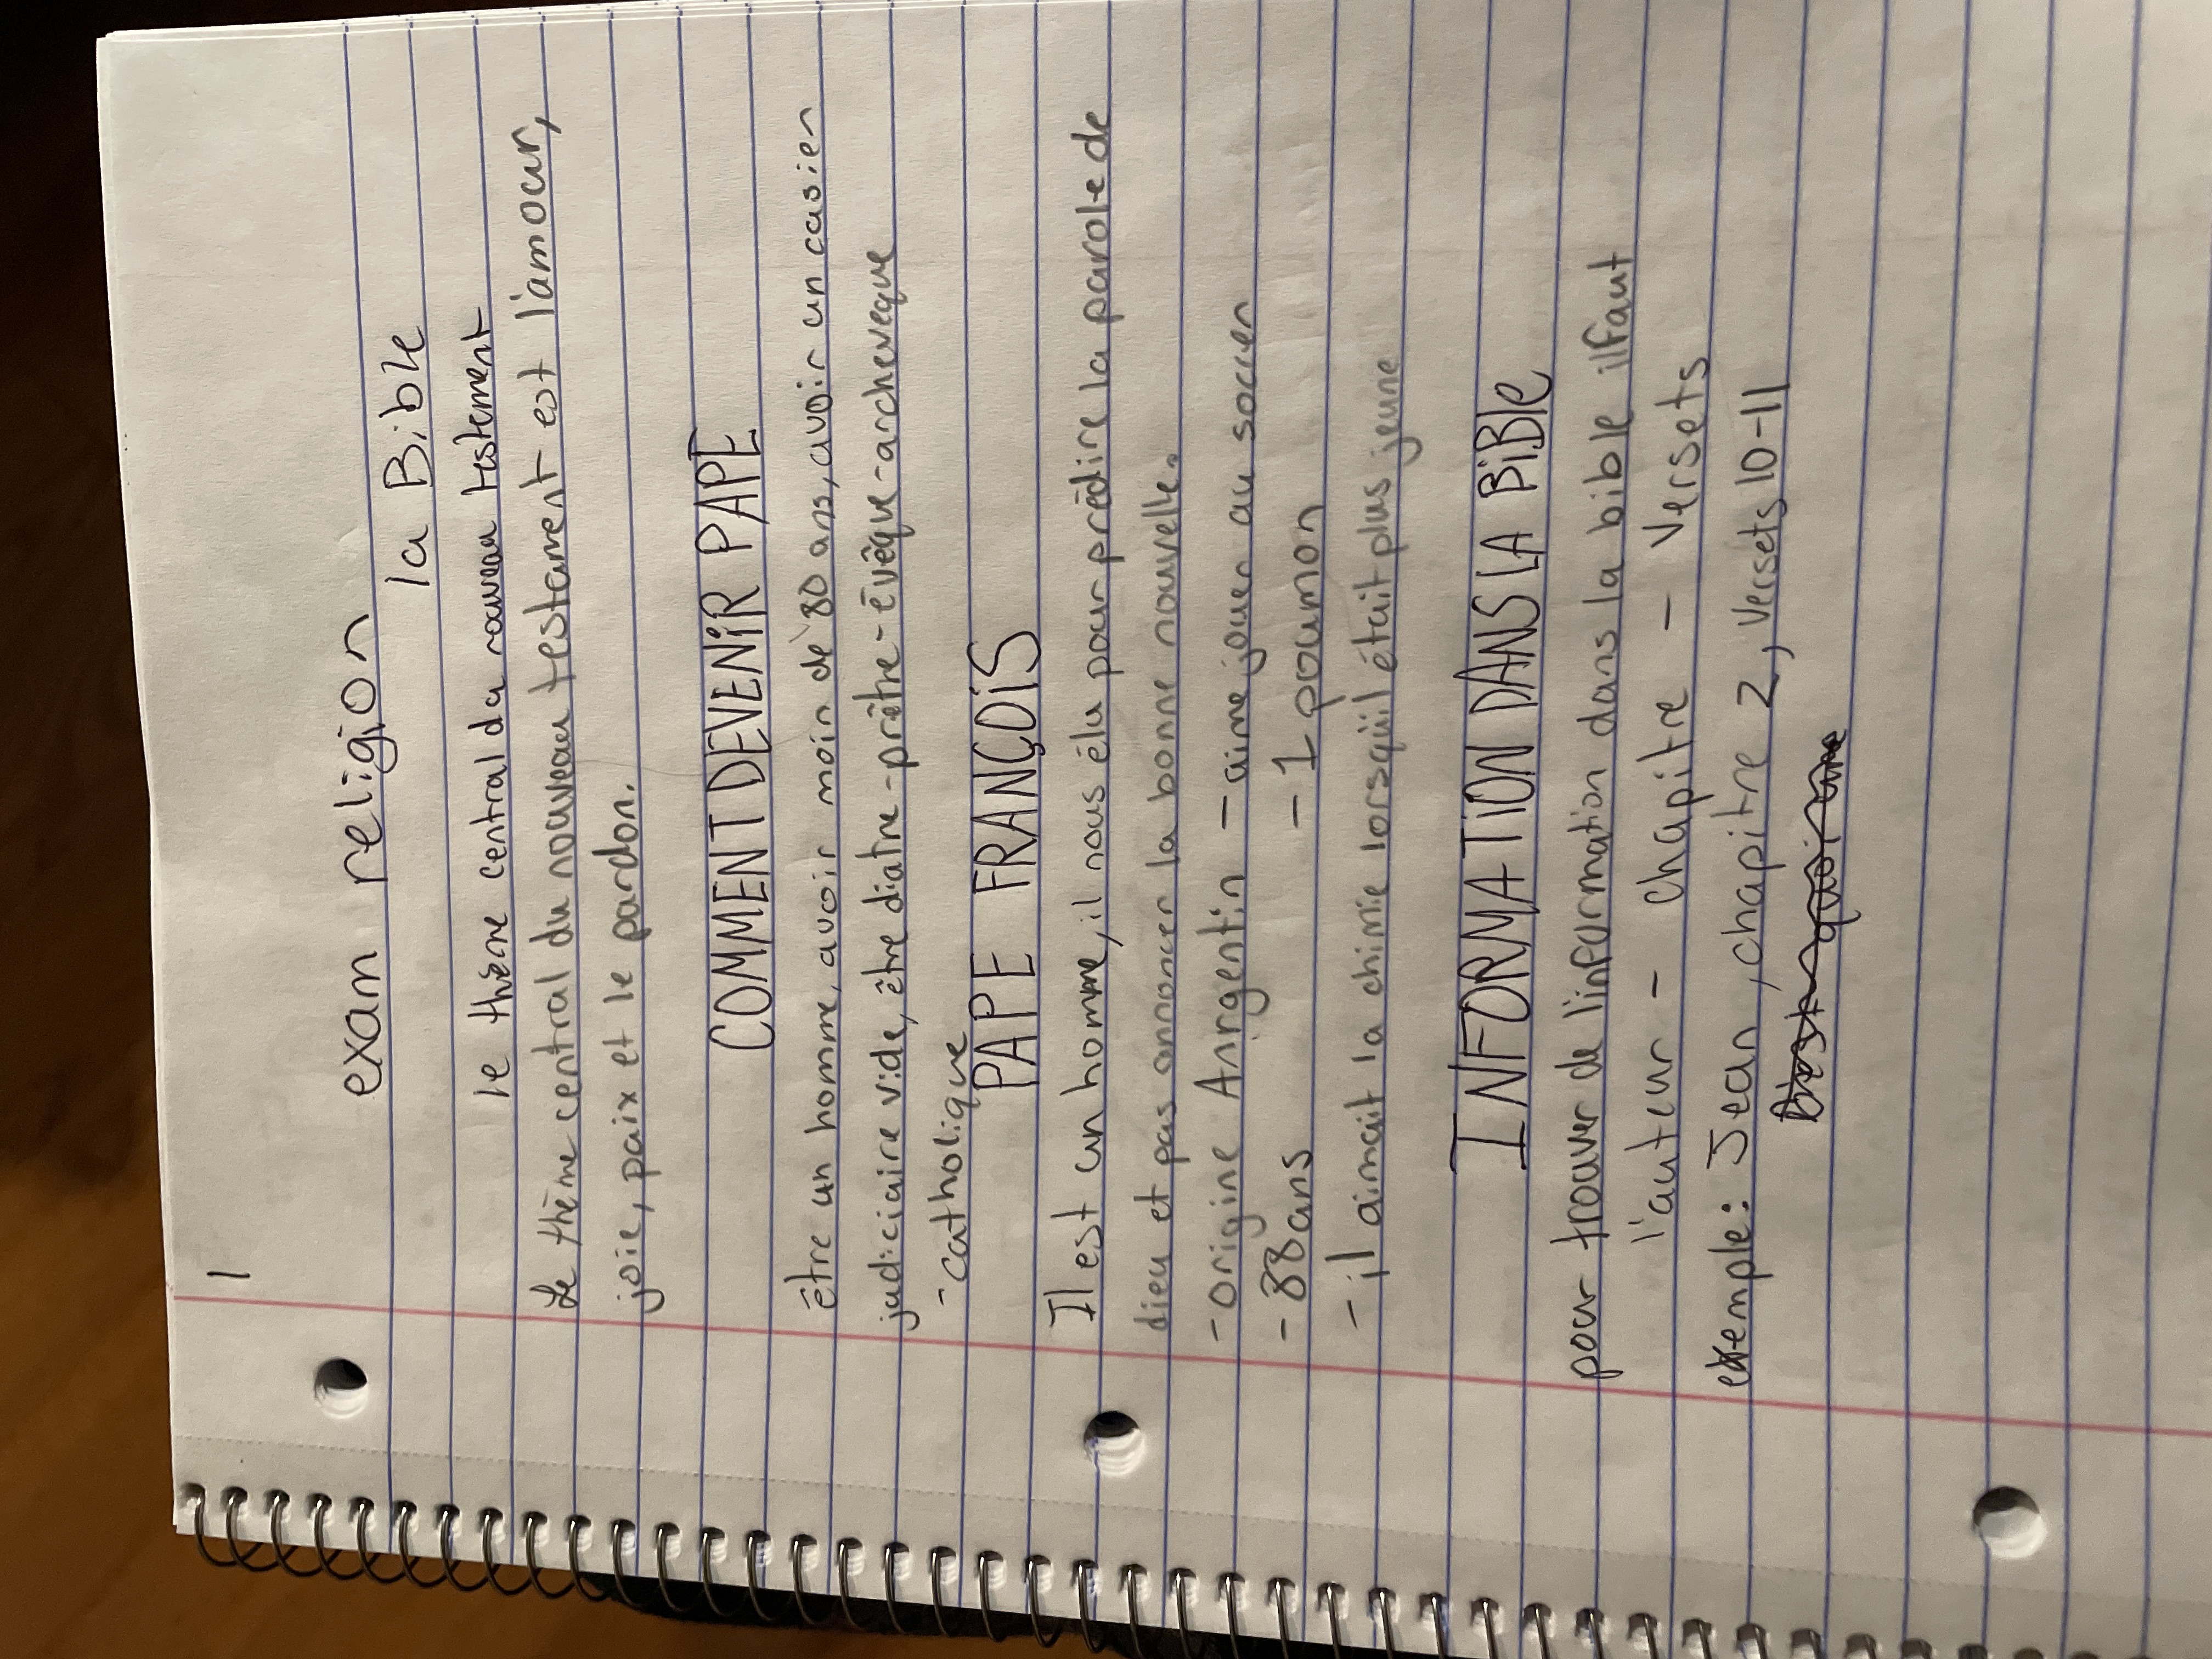 1
exam religion
la Bible
le thème central du nouveau testement
Le thème central du nouveau testament est l'amour,
joie, paix et le pardon.
COMMENT DEVENIR PAPE
être un homme, avoir moin de 80 ans, avoir un casier
judiciaire vide, être diatre - prêtre - évêque - archeveque
- catholique
PAPE FRANÇOIS
Il est un homme, il nous élu pour prédire la parole de
dieu et pas annoncer la bonne nouvelle.
- origine Anrgentin - aime jouer au soccer
- 88 ans - 1 poumon
- il aimait la chimie lorsqu'il était plus jeune
INFORMATION DANS LA BiBle
pour trouver de l'information dans la bible il faut
l'auteur - chapitre - Versets
exemple: Jean, chapitre 2, Versets 10-11
quoi une